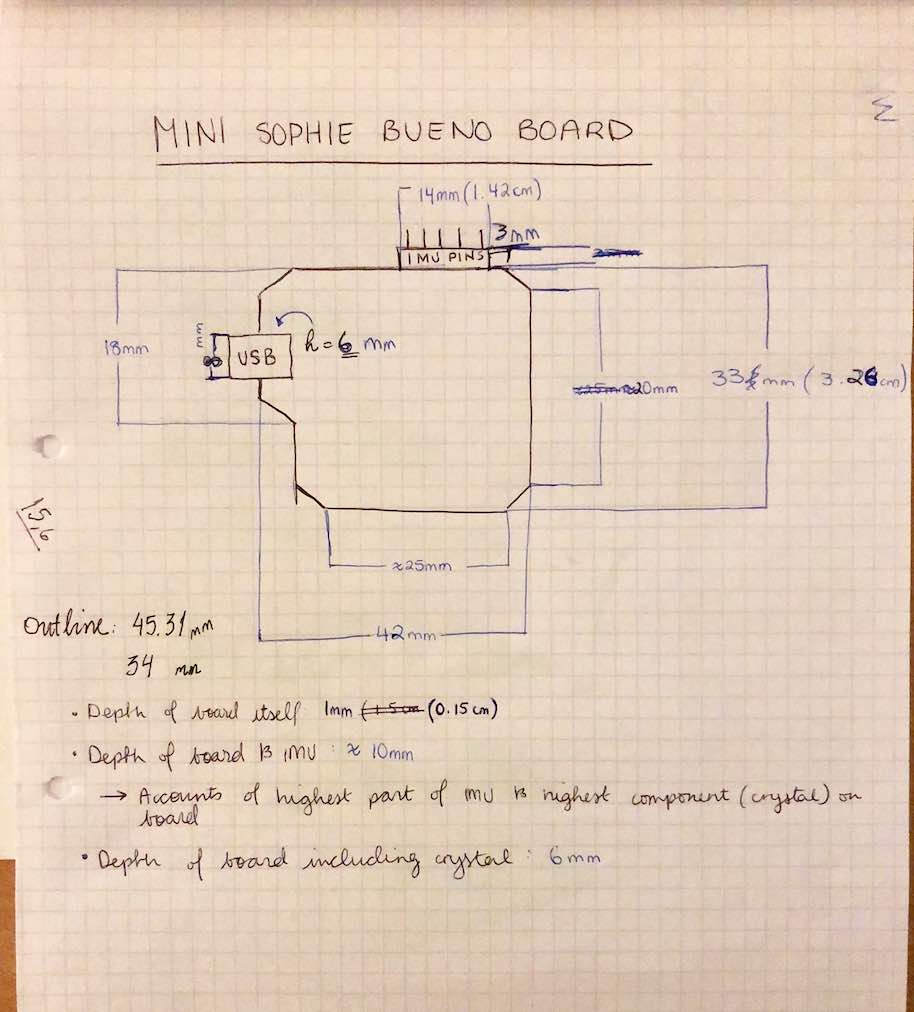 MINI SOPHIE BUENO BOARD
14mm (1.42cm)
3mm
IMU PINS
18mm
8 mm
USB
h = 6 mm
20mm
mm (3.26cm)
15,6
≈25mm
42mm
Outline: 45.31mm
34 mm
• Depth of board itself 1mm (0.15cm)
• Depth of board IMU : ≈ 10mm
→ Accounts of highest part of IMU highest component (crystal) on
board
• Depth of board including crystal : 6mm